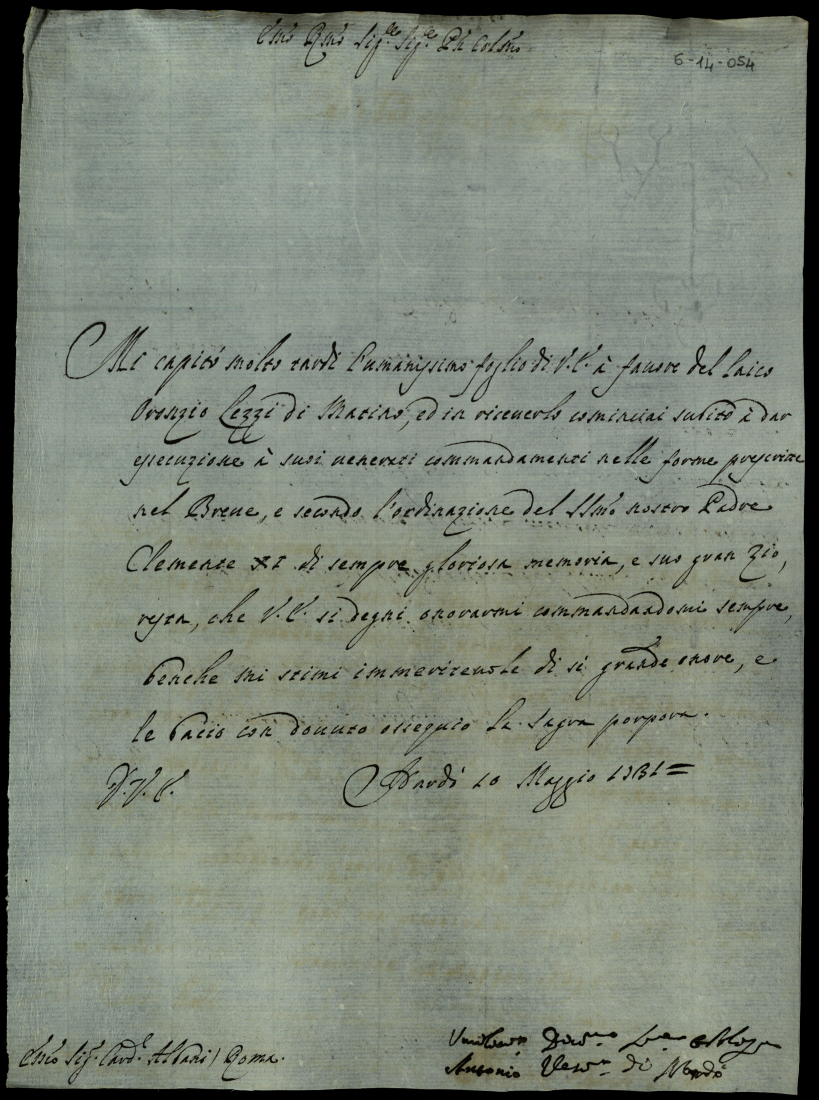 Emo Rmo Sig.re Sig.re Pñ Colmo
6-14-054
Mi capitò molto tardi l'umanissimo foglio di V.E. à favore del laico
Oronzio Lezzi di Matino, ed in riceverlo cominciai subito à dar
esecuzione à suoi venerati commandamenti nelle forme prescritte
nel Breve, e secondo l'ordinazione del SSmo nostro Padre
Clemente XI di sempre gloriosa memoria, e suo gran Zio,
resta, che V.E. si degni onorarmi commandandomi sempre,
benche mi stimi immeritevole di si grande onore, e
le bacio con dovuto ossequio la sagra porpora.
D.V.E. Nardò 10 Maggio 1731=
Emo Sig.r Card.l Albani / Roma.
Antonio Vesc.o di Nardò